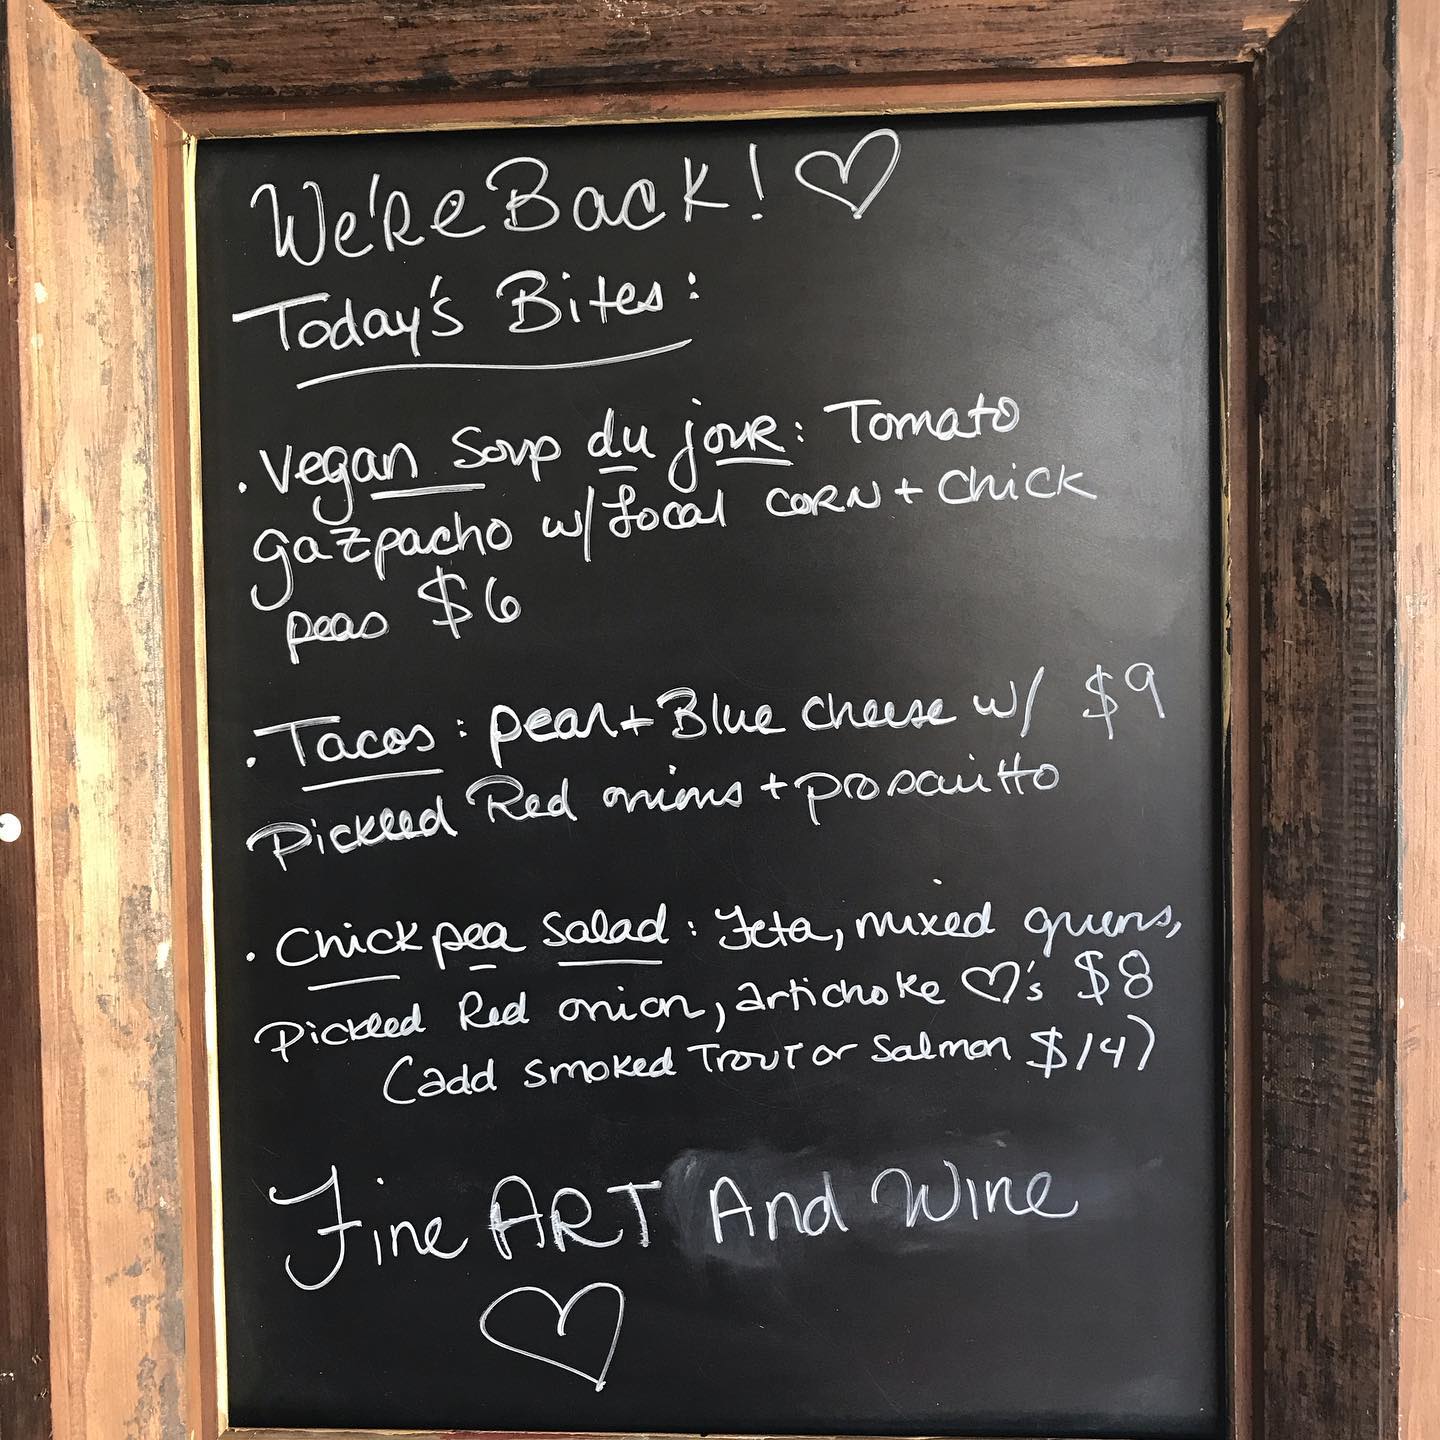 We're Back! ♡
Today's Bites:
• Vegan Soup du jour: Tomato
gazpacho w/ Local corn + Chick
peas $6
• Tacos: pear + Blue Cheese w/ $9
Pickled Red onions + proscuitto
• Chick pea Salad: Feta, mixed greens,
Pickled Red onion, artichoke ♡'s $8
(add smoked Trout or Salmon $14)
Fine ART And Wine
♡